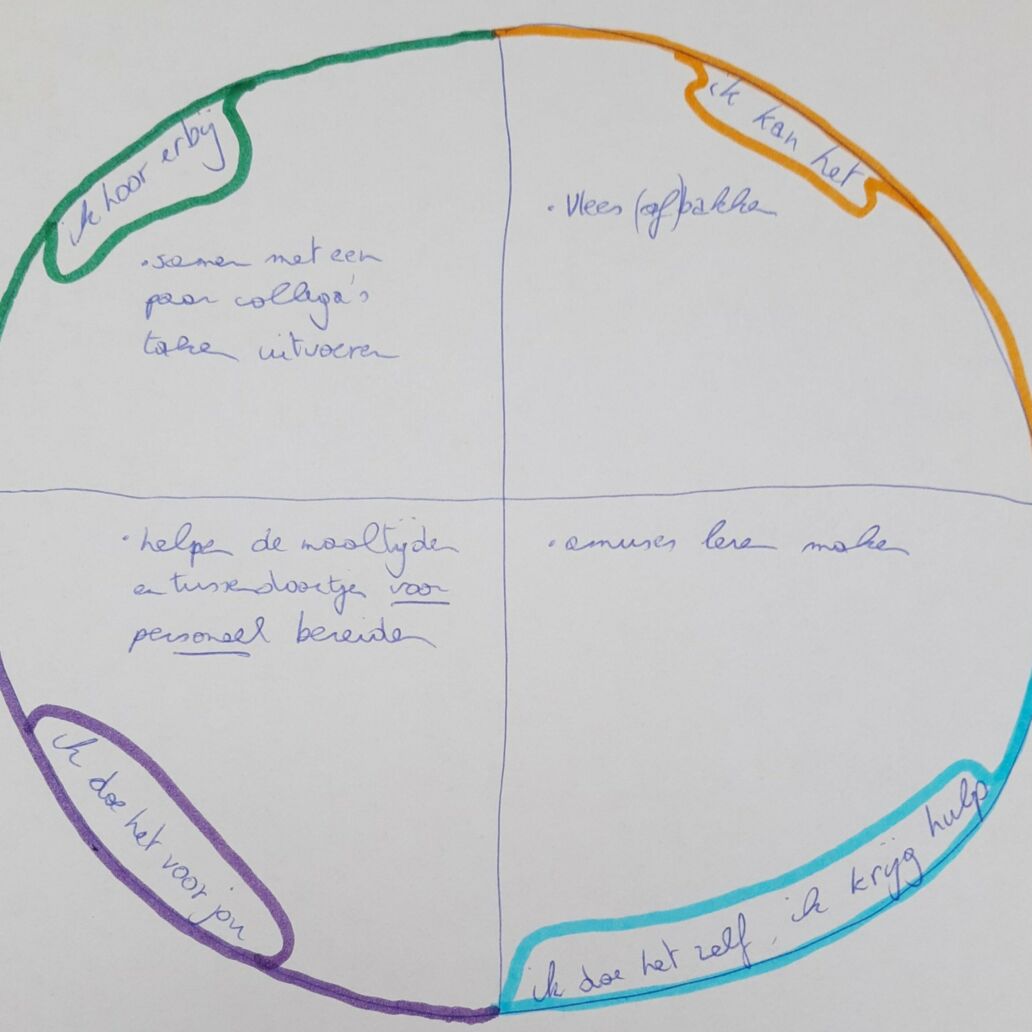 ik hoor erbij
• samen met een
paar collega's
taken uitvoeren
ik kan het
• Vlees (af)bakken
• helpen de maaltijden
en tussendoortjes voor
personeel bereiden
ik doe het voor jou
• amuses leren maken
ik doe het zelf, ik krijg hulp